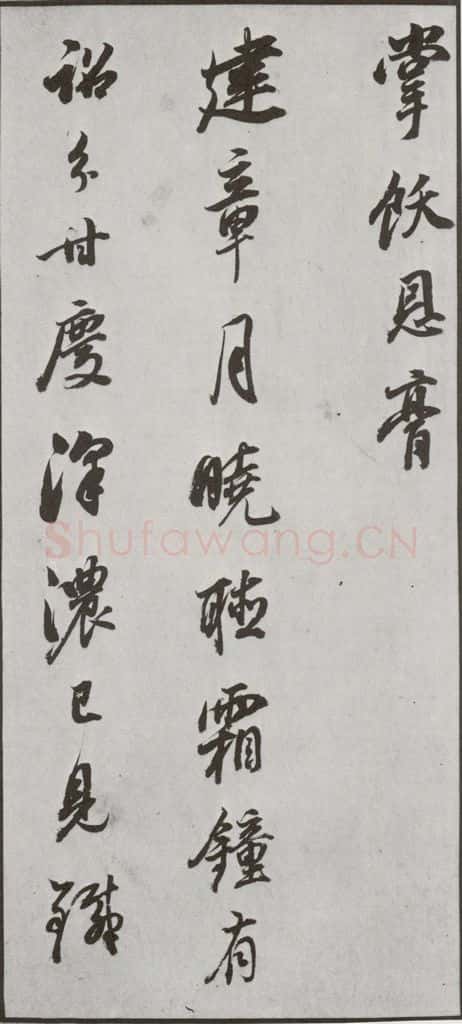 掌飫恩膏
建章月曉聽霜鐘有
詔分甘慶澤濃已見
Shufawang.CN